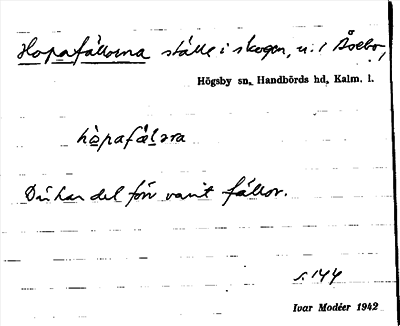 Hopafällorna ställe i skogen, u. / Åsebo,
Högsby sn, Handbörds hd, Kalm. l.
hòpafæ̀ḷəra
Där har det förr varit fällor.
s. 144
Ivar Modéer 1942